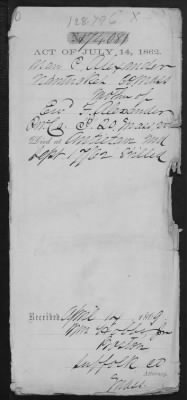 128.796 X
374081
ACT OF JULY, 14, 1862.
Mary C. Alexander
Nantucket Co Mass
Mother of
Ew. F. Alexander
Pri Co. I. 20 Mass Vol
Died at Antietam Md
Sept 17/62 Killed
Received, April 12 1869
Wm
Boston
Suffolk Co
Attorney.
Mass